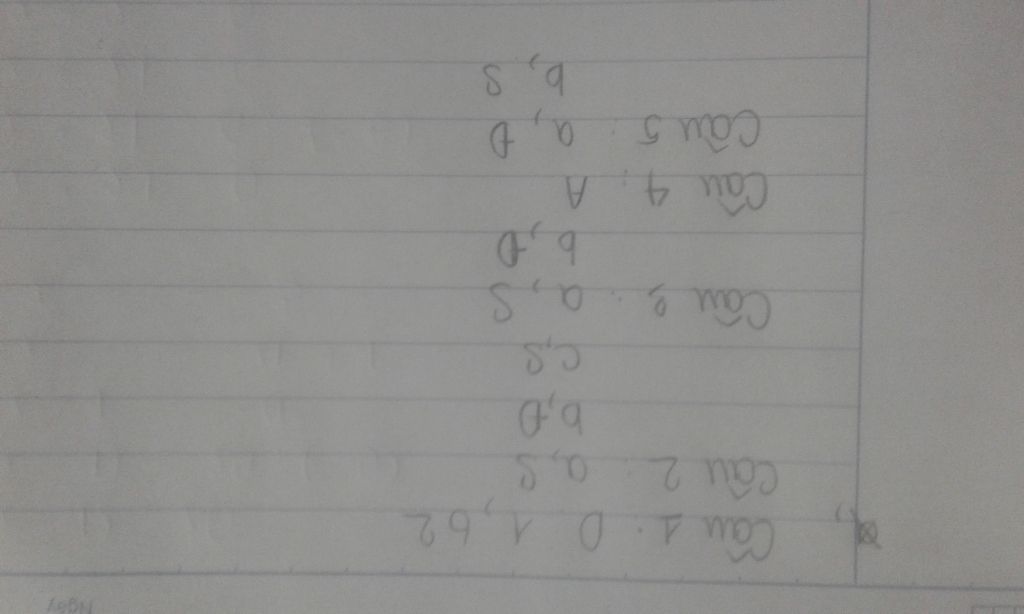 Ngày
Câu 1. D 1,62
Câu 2. a, S
b, Đ
c, S
Câu 3. a, S
b, Đ
Câu 4. A
Câu 5. a, Đ
b, S